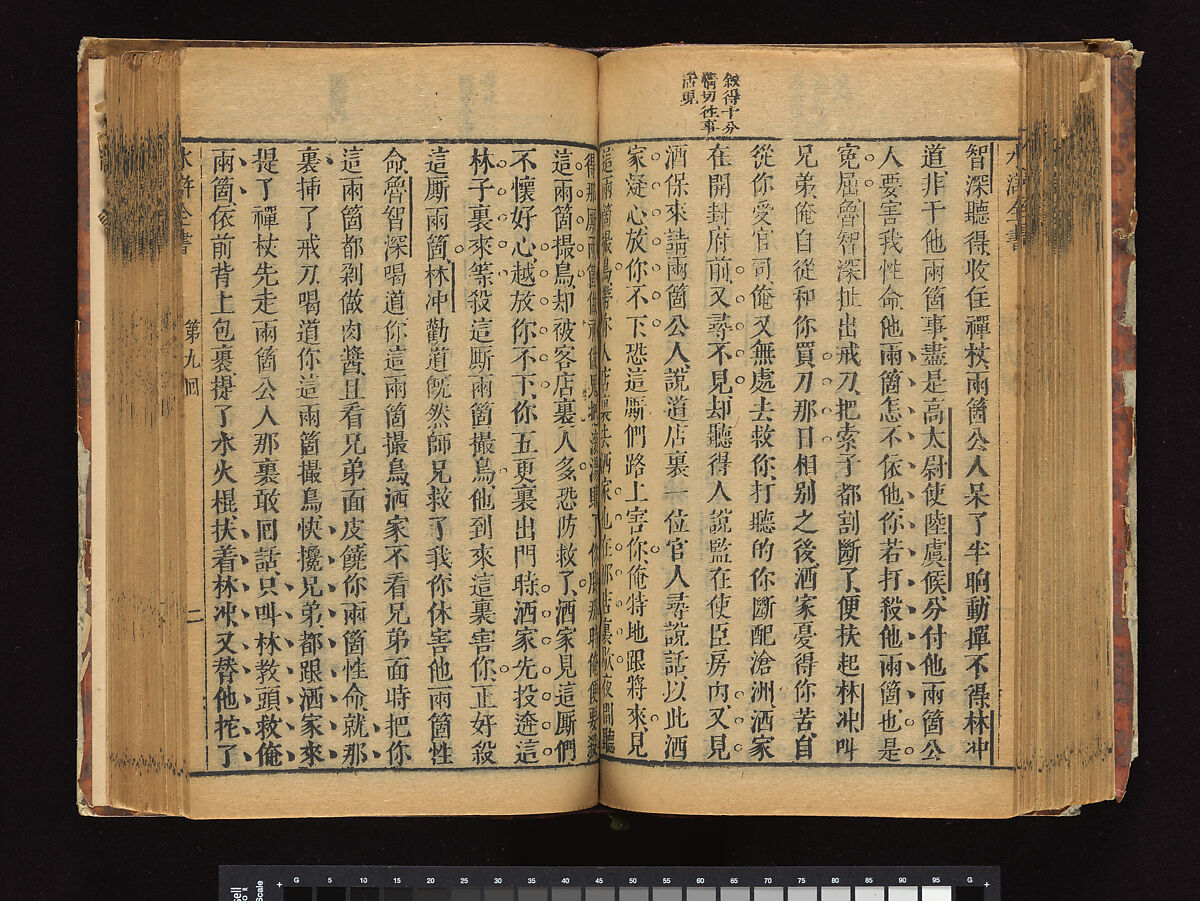 敘得十分
情切往事
活現
水滸全書
智深聽得收住禪杖兩箇公人呆了半晌動撣不得林冲
道非干他兩箇事盡是高太尉使陸虞候分付他兩箇公
人要害我性命他兩箇怎不依他你若打殺他兩箇也是
冤屈魯智深扯出戒刀把索子都割斷了便扶起林冲叫
兄弟俺自從和你買刀那日相別之後洒家憂得你苦自
從你受官司俺又無處去救你打聽的你斷配滄洲洒家
在開封府前又尋不見却聽得人說監在使臣房內又見
酒保來請兩箇公人說道店裏一位官人尋說話以此洒
家疑心放你不下恐這厮們路上害你俺特地跟將來見
這兩箇撮鳥帶你入店裏去洒家也在那店裏歇夜間聽
得那厮兩箇做神做鬼把滾湯賺了你脚那時俺便要殺
這兩箇撮鳥却被客店裏人多恐防救了洒家見這厮們
不懷好心越放你不下你五更裏出門時洒家先投逩這
林子裏來等殺這厮兩箇撮鳥他到來這裏害你正好殺
這厮兩箇林冲勸道旣然師兄救了我你休害他兩箇性
命魯智深喝道你這兩箇撮鳥洒家不看兄弟面時把你
這兩箇都剁做肉醬且看兄弟面皮饒你兩箇性命就那
裏揷了戒刀喝道你這兩箇撮鳥快攙兄弟都跟洒家來
提了禪杖先走兩箇公人那裏敢回話只叫林教頭救俺
兩箇依前背上包裹提了水火棍扶着林冲又替他拕了
水滸全書
第九回
二